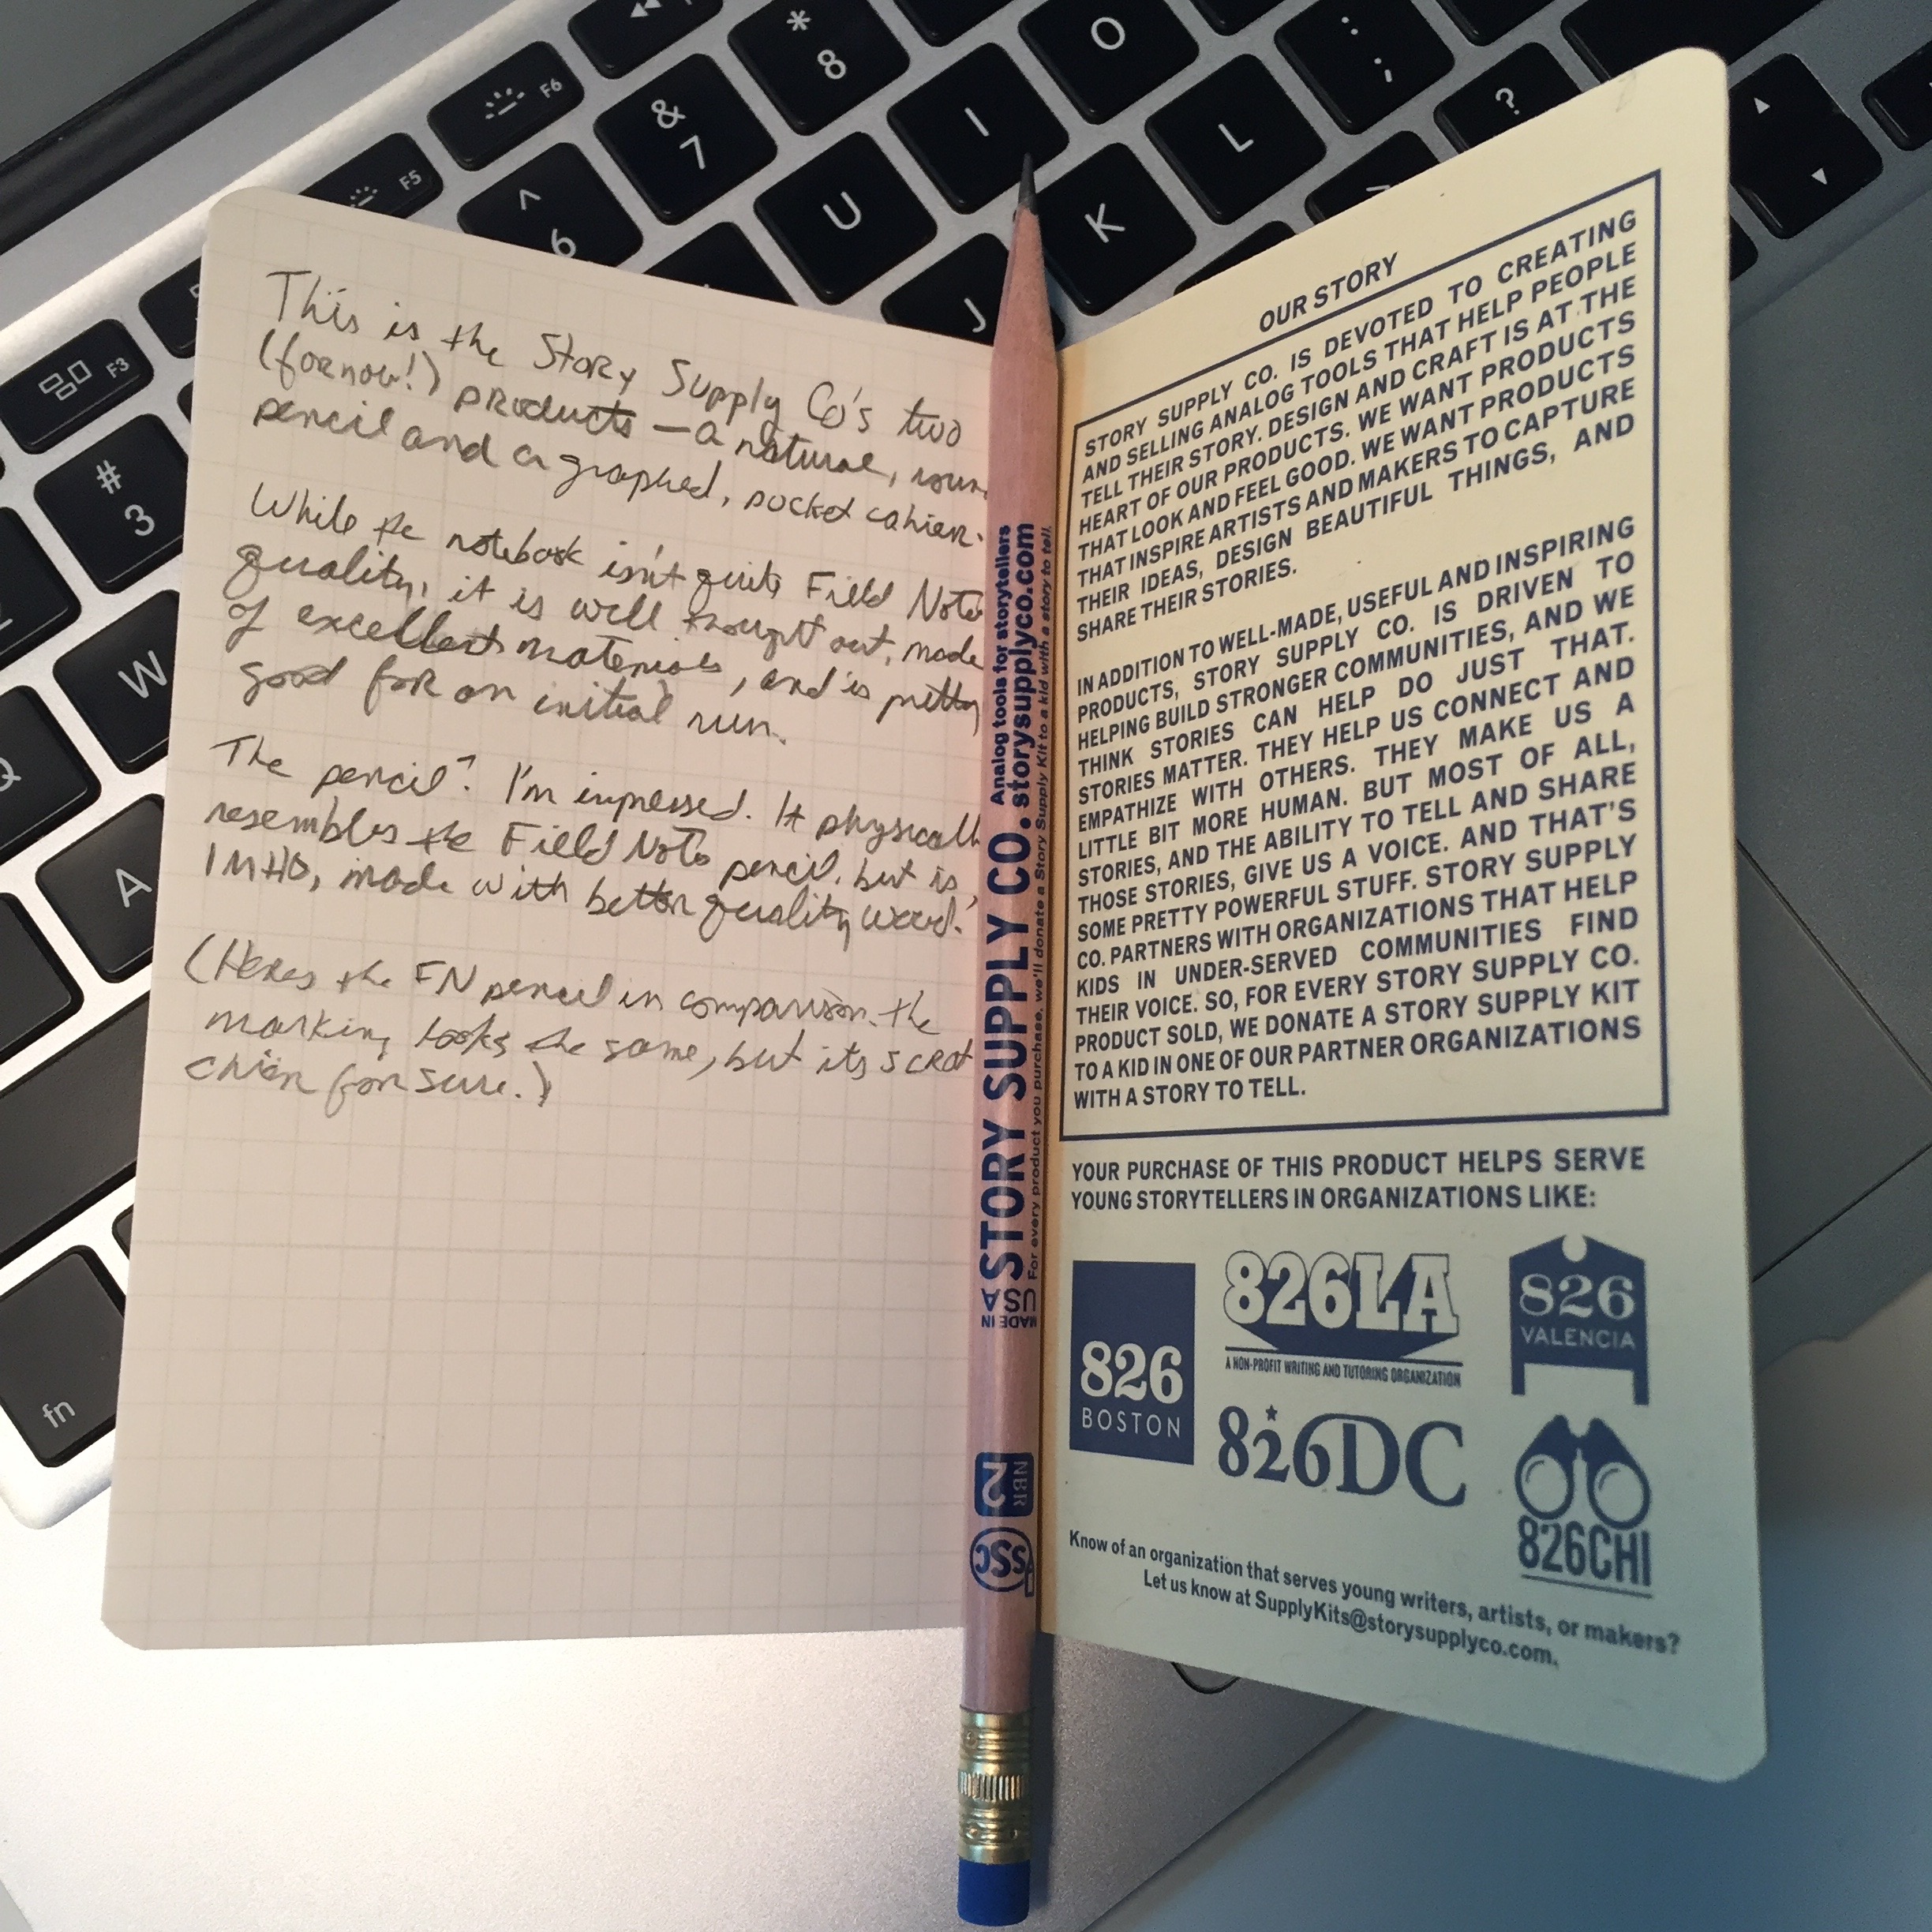 This is the Story Supply Co's two
(for now!) products — a natural, roun
pencil and a graphed, pocket cahier.
While the notebook isn't quite Field Note
quality, it is well thought out, made
of excellent materials, and is pretty
good for an initial run.
The pencil? I'm impressed. It physicall
resembles the Field Note pencil, but is,
IMHO, made with better quality wood.
(Heres the FN pencil in comparison. the
marking looks the same, but its scrat
chier for sure.)
Analog tools for storytellers
STORY SUPPLY CO. storysupplyco.com
For every product you purchase, we'll donate a Story Supply Kit to a kid with a story to tell.
MADE IN
USA
NBR
2
SSC
OUR STORY
STORY SUPPLY CO. IS DEVOTED TO CREATING
AND SELLING ANALOG TOOLS THAT HELP PEOPLE
TELL THEIR STORY. DESIGN AND CRAFT IS AT THE
HEART OF OUR PRODUCTS. WE WANT PRODUCTS
THAT LOOK AND FEEL GOOD. WE WANT PRODUCTS
THAT INSPIRE ARTISTS AND MAKERS TO CAPTURE
THEIR IDEAS, DESIGN BEAUTIFUL THINGS, AND
SHARE THEIR STORIES.
IN ADDITION TO WELL-MADE, USEFUL AND INSPIRING
PRODUCTS, STORY SUPPLY CO. IS DRIVEN TO
HELPING BUILD STRONGER COMMUNITIES, AND WE
THINK STORIES CAN HELP DO JUST THAT.
STORIES MATTER. THEY HELP US CONNECT AND
EMPATHIZE WITH OTHERS. THEY MAKE US A
LITTLE BIT MORE HUMAN. BUT MOST OF ALL,
STORIES, AND THE ABILITY TO TELL AND SHARE
THOSE STORIES, GIVE US A VOICE. AND THAT'S
SOME PRETTY POWERFUL STUFF. STORY SUPPLY
CO. PARTNERS WITH ORGANIZATIONS THAT HELP
KIDS IN UNDER-SERVED COMMUNITIES FIND
THEIR VOICE. SO, FOR EVERY STORY SUPPLY CO.
PRODUCT SOLD, WE DONATE A STORY SUPPLY KIT
TO A KID IN ONE OF OUR PARTNER ORGANIZATIONS
WITH A STORY TO TELL.
YOUR PURCHASE OF THIS PRODUCT HELPS SERVE
YOUNG STORYTELLERS IN ORGANIZATIONS LIKE:
826
BOSTON
826LA
A NON-PROFIT WRITING AND TUTORING ORGANIZATION
826
VALENCIA
826DC
826CHI
Know of an organization that serves young writers, artists, or makers?
Let us know at SupplyKits@storysupplyco.com.
F6
F5
F3
*
8
&
7
^
6
#
3
O
I
U
L
K
J
:
;
?
W
Q
A
fn